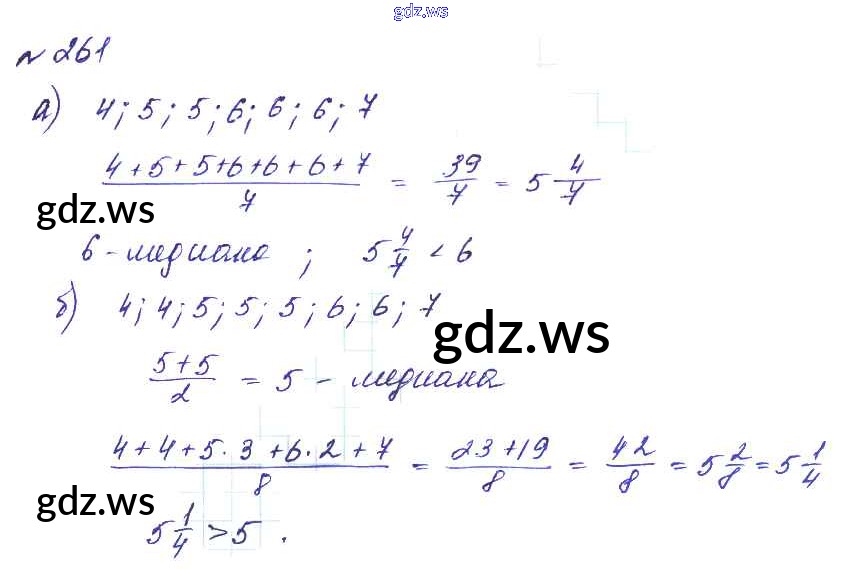 gdz.ws
№ 261
а) 4; 5; 5; 6; 6; 6; 7
(4+5+5+6+6+6+7)/7 = 39/7 = 5 4/7
gdz.ws
6 - медиана ; 5 4/7 < 6
б) 4; 4; 5; 5; 5; 6; 6; 7
gdz.ws
(5+5)/2 = 5 - медиана
(4+4+5·3+6·2+7)/8 = (23+19)/8 = 42/8 = 5 2/8 = 5 1/4
gdz.ws
5 1/4 > 5 .